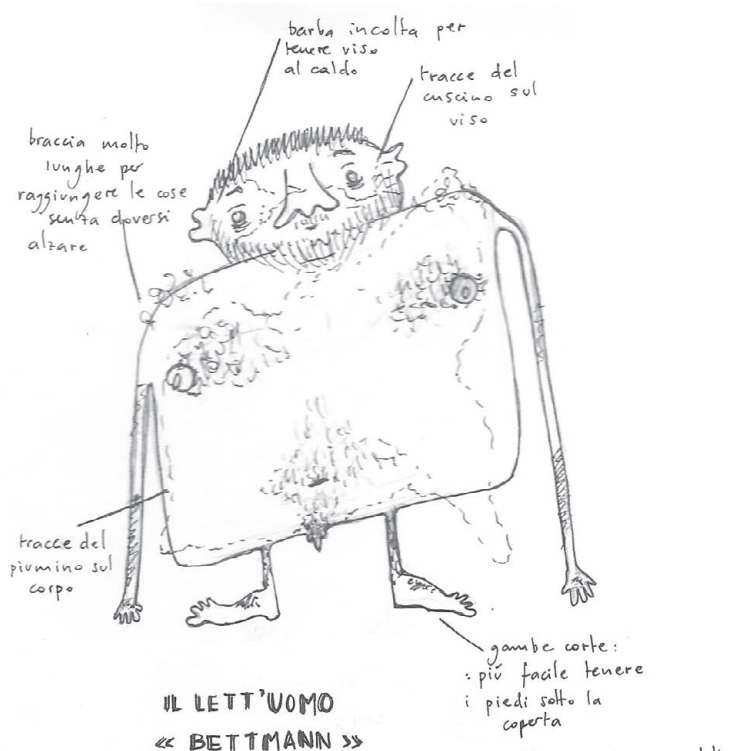 barba incolta per
tenere viso
al caldo
tracce del
cuscino sul
viso
braccia molto
lunghe per
raggiungere le cose
senza doversi
alzare
tracce del
piumino sul
corpo
gambe corte:
: più facile tenere
i piedi sotto la
coperta
IL LETT'UOMO
« BETTMANN »